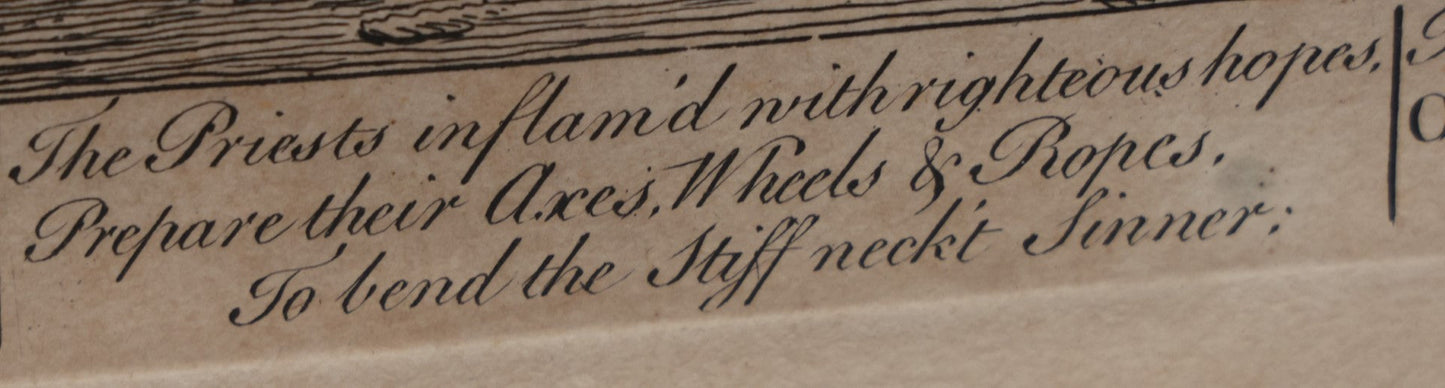 The Priests inflam'd with righteous hopes,
Prepare their Axes, Wheels & Ropes,
To bend the Stiff neck't Sinner;